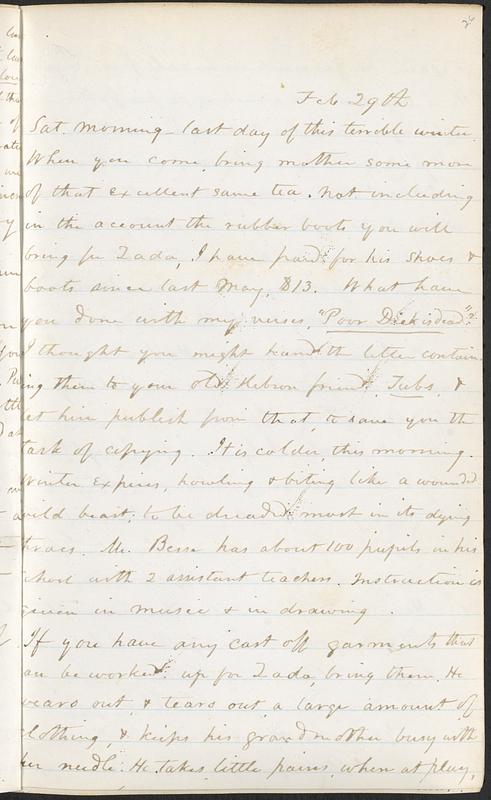 Feb 29th
Sat. morning - last day of this terrible winter.
When you come, bring mother some more
of that excellent same tea. Not including
in the account the rubber boots you will
bring for Zada, I have paid for his shoes &
boots since last May, $13. What have
you done with my verses, "Poor Dick is dead"?
I thought you might hand the letter contain
ing them to your old Hebron friend, Tubs, &
let him publish from that, & save you the
task of copying. It is colder this morning.
Winter expires, howling & biting like a wounded
wild beast, to be dreaded most in its dying
throes. Mr. Besse has about 100 pupils in his
school with 2 assistant teachers. Instruction is
given in music & in drawing.
If you have any cast off garments that
can be worked up for Zada, bring them. He
wears out, & tears out, a large amount of
clothing, & keeps his grandmother busy with
her needle. He takes little pains, when at play,